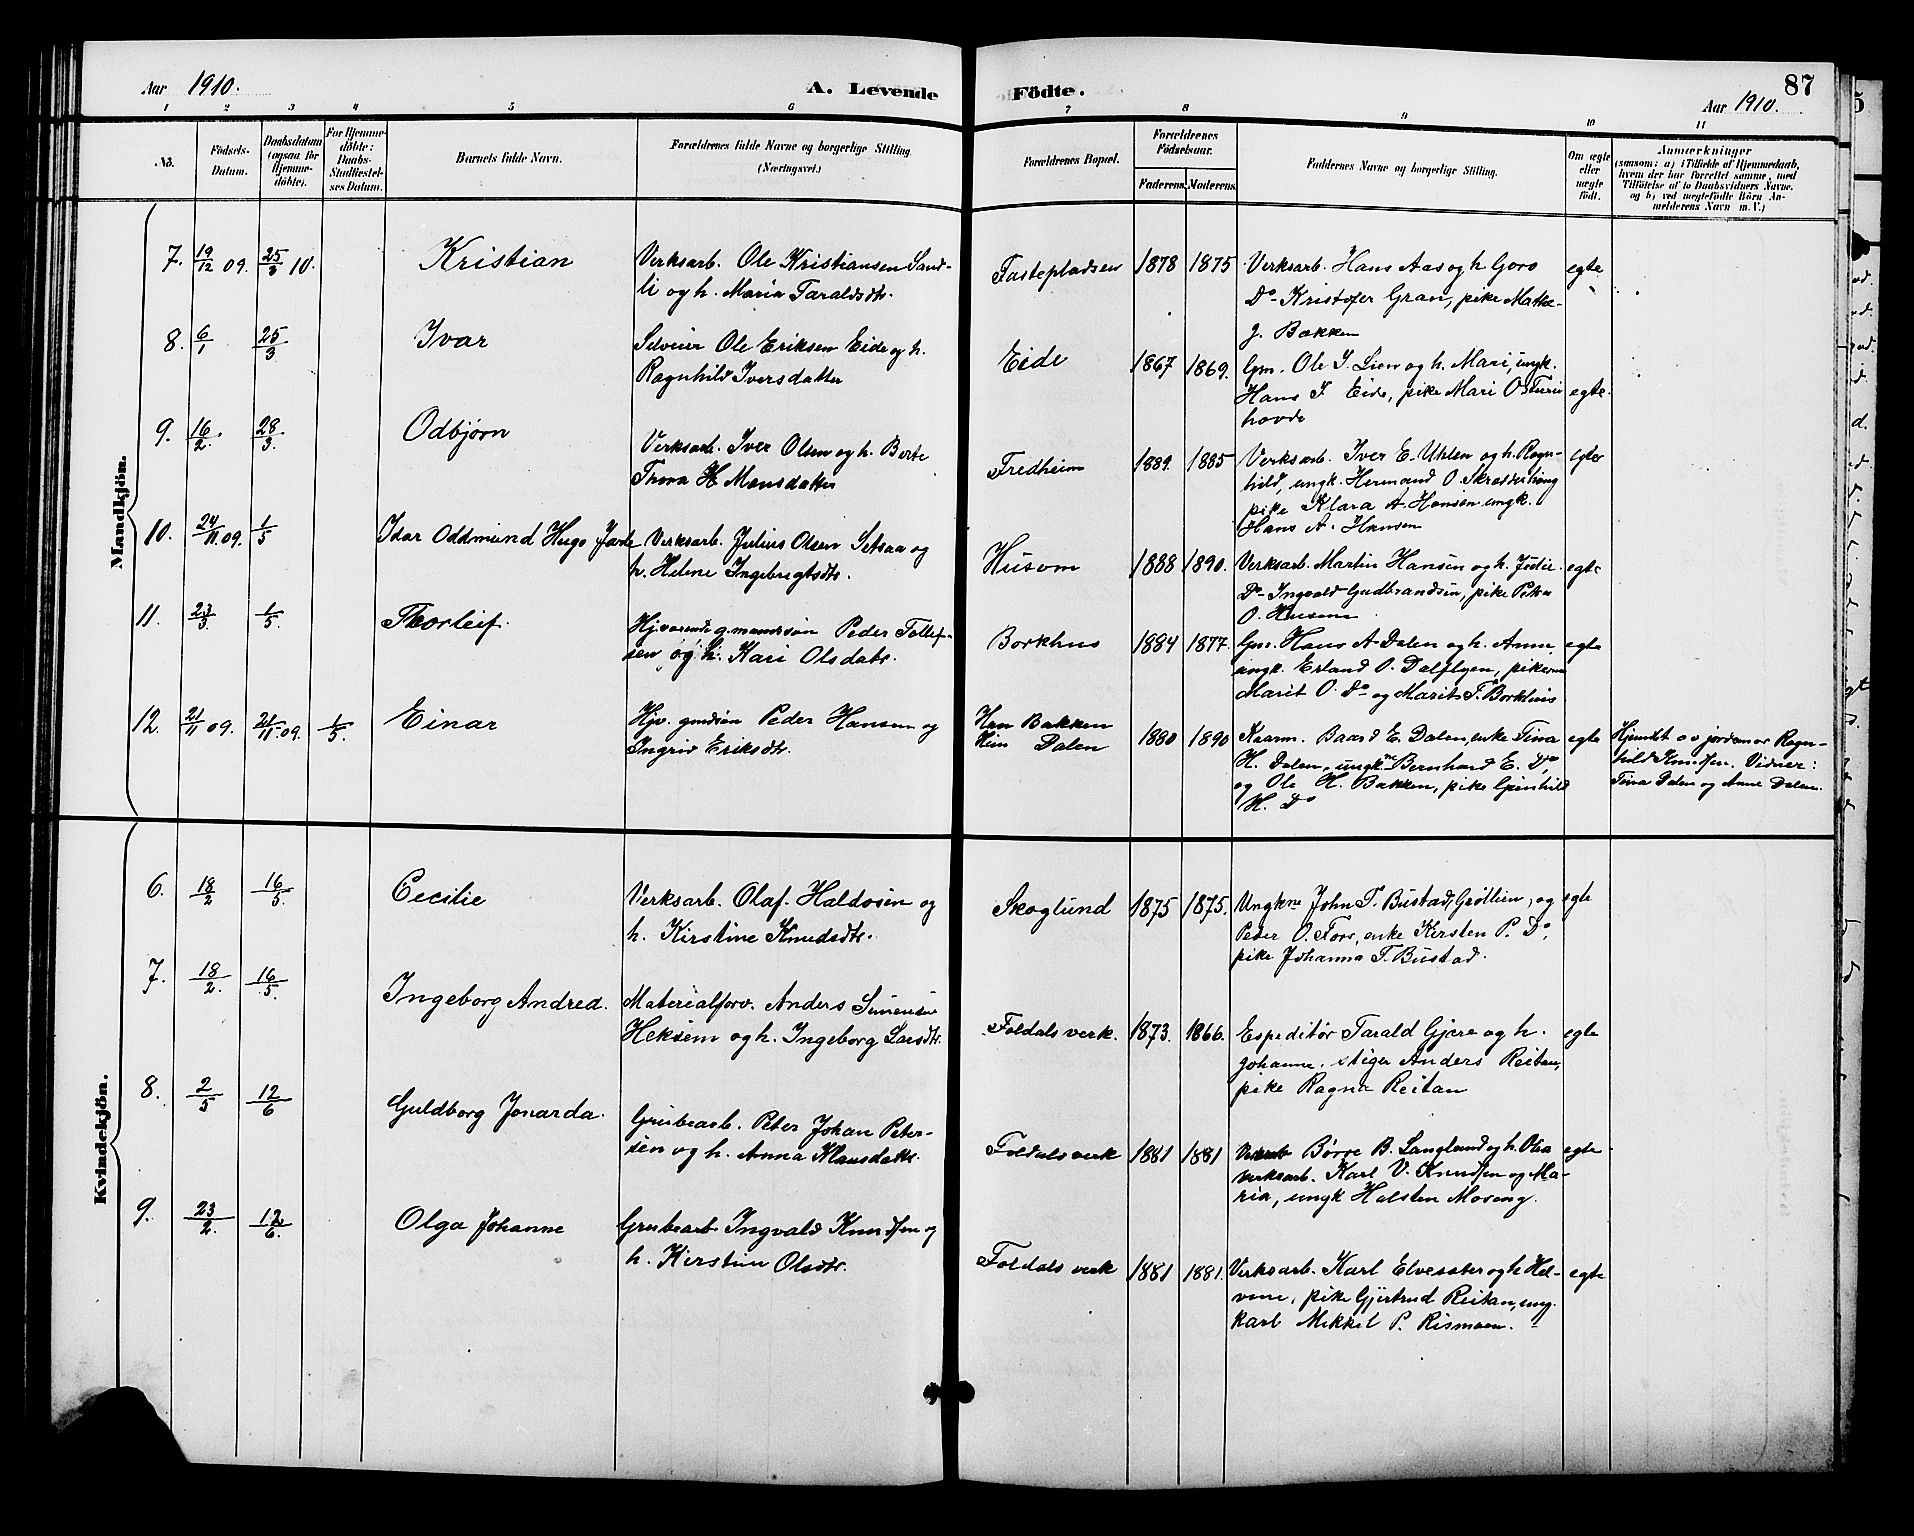 Aar 1910.
A. Levende
Födte.
87
Aar 1910.
1 2 3 4 5 6 7 8 9 10 11
No.
Födsels-
Datum.
Daabsdatum
(ogsaa for
Hjemme-
döbte).
For Hjemme-
döbte:
Daabs-
Stadfæstel-
ses Datum.
Barnets fulde Navn.
Forældrenes fulde Navne og borgerlige Stilling
(Næringsvei.)
Forældrenes Bopæl.
Forældrenes
Födselsaar.
Faderens.
Moderens.
Faddernes Navne og borgerlige Stilling.
Om ægte
eller
uægte
født.
Anmærkninger
(saasom: a) i Tilfælde af Hjemmedaab,
hvem der har forrettet samme, med
Tilföielse af to Daabsvidners Navne.
og b) ved uægtefödte Börn An-
melderens Navn m. V.)
Mandkjön.
7. 19/12 09. 25/3 10. Kristian
Verksarb. Ole Kristiansen Sand-
li og h. Maria Taraldsdtr.
Fastepladsen 1878 1875
Verksarb. Hans Aas og h. Goro
Do Kristofer Gran, pike Mathea
J. Bakken
egte
8. 6/1 25/3 Ivar
Selveier Ole Eriksen Eide og h.
Ragnhild Iversdatter
Eide 1867 1869.
Gm. Ole J. Lien og h. Mari, ungk.
Hans I Eide, pike Mari O
hovde
egte
9. 16/2. 28/3. Odbjørn
Verksarb. Iver Olsen og h. Berte
Thora H Mansdatter
Fredheim 1889. 1885
Verksarb. Iver E. Uhlen og h. Ragn-
hild, ungk. Hermand O.
pike Klara A. Hansen ungk.
Hans A. Hansen
egte
10. 24/11.09. 1/5 Idar Oddmund Hugo
Verksarb. Julius Olsen Setsaa og
h. Helene Ingebrigtsdtr.
Husom 1888 1890.
Verksarb. Martin Hansen og h. Julie
Do Ingvald Gudbrandsen, pike Petra
O.
egte
11. 23/3 1/5. Thorleif.
Hjv. g.mandsøn Peder Tollef-
sen og h. Kari Olsdatr.
Borkhus 1884 1877.
Gm. Hans A Dalen og h. Anne,
ungk. Erland O. Dalflyen, pikerne
Marit O. Do og Marit T. Borkhus
egte
12. 21/11 09. 21/11.09. 1/5. Einar
Hjv. gmdsøn Peder Hansen og
Ingrid Eriksdtr.
Han Bakken
Hun Dalen 1880 1890
Kaarm. Baard E. Dalen, enke Tina
H. Dalen, ungkm Bernhard E. Do
og Ole H. Bakken, pike Gunhild
H. Do
egte
Hjemdt av jordmor Ragn-
hild Knudsen. Vidner:
Tina Dalen og Anne Dalen.
Kvindekjön.
6. 18/2 16/5. Cecilie
Verksarb. Olaf Haldosen og
h. Kirstine Knudsdtr.
Skoglund 1875 1875.
Ungkne John T. Bustad, Grötlien, og
Peder O. Foss, enke Kersten P. Do,
pike Johanna T. Bustad.
egte
7. 18/2. 16/5. Ingeborg Andred.
Materialforv. Anders Simensen
Heksem og h. Ingeborg Larsdtr.
Foldals verk. 1873. 1866.
Espeditør Tarald Gjere og h.
Johanne. stiger Anders Reitan,
pike Ragna Reitan
egte
8. 2/5 12/6 Guldborg Jonarda.
Grubearb. Peter Johan Peter-
sen og h. Anna Klausdatr.
Foldals verk 1881 1881
Verksarb Børre B. Langlund og h. Olea
verksarb. Karl V. Knudsen og Ma-
ria, ungk Halsten Moseng.
egte
9. 23/2. 12/6. Olga Johanne
Grubearb Ingvald Knudsen og
h. Kirstine Olsdtr.
Foldals verk 1881 1881.
Verksarb. Karl Elvesæter og h Hel-
vine, pike Gjertrud Reitan, ung-
karl Mikkel P. Rismoen.
egte